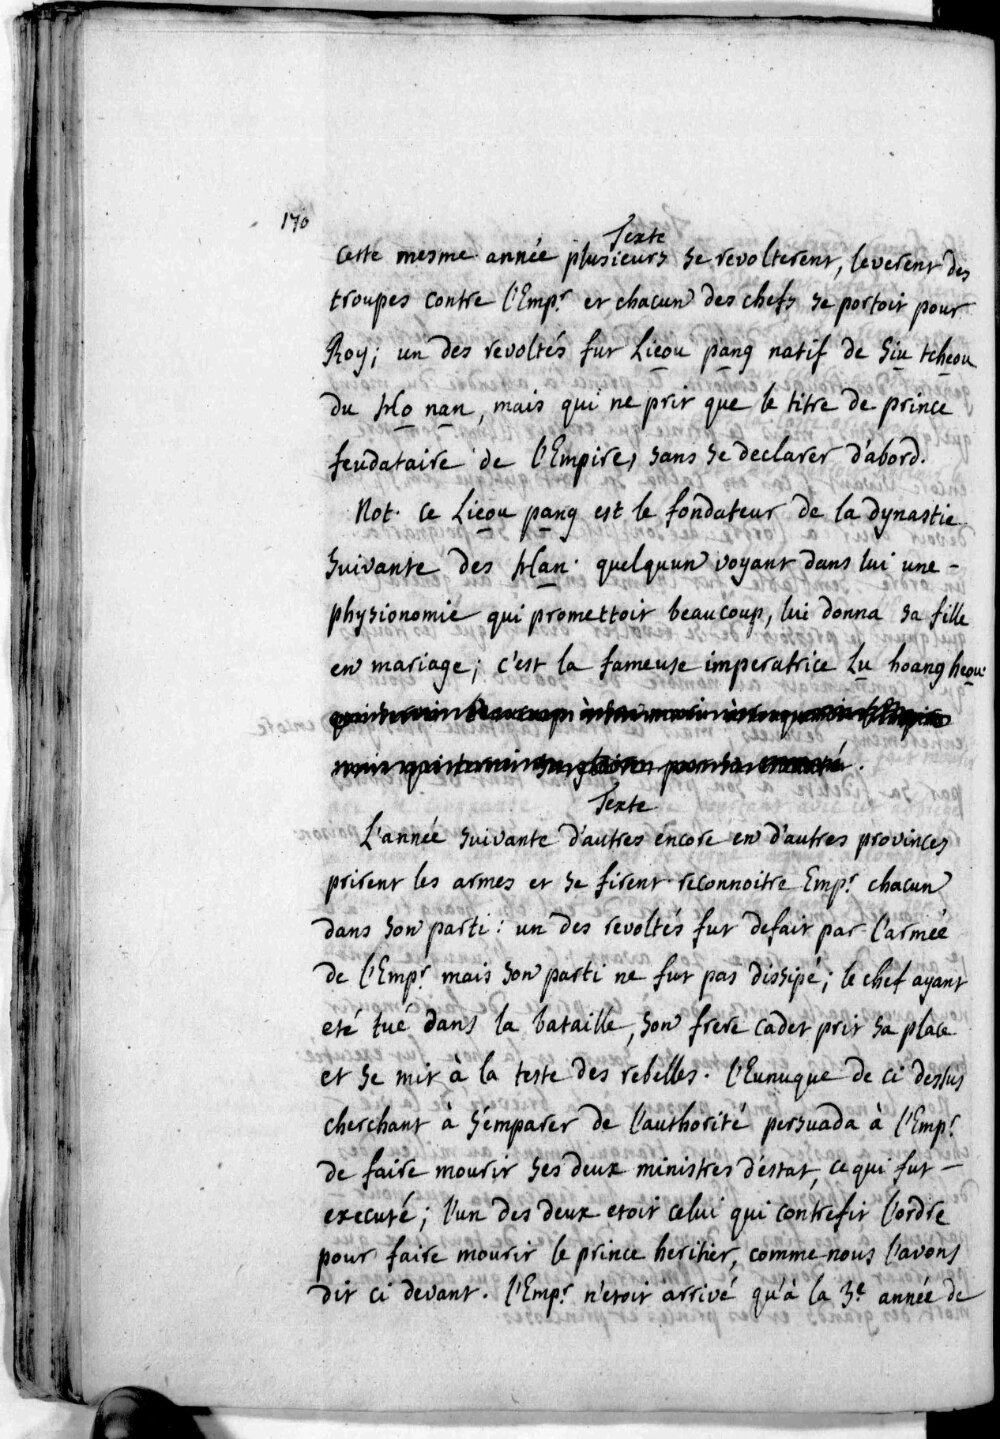 170
Texte
cette mesme année plusieurs se revolterent, leverent des
troupes contre l'Emp.r et chacun des chefs se portoit pour
Roy; un des revoltés fut Lieou pang natif de Siu tcheou
du Ho nan, mais qui ne prit que le titre de prince
feudataire de l'Empire, sans se declarer d'abord.
Not. ce Lieou pang est le fondateur de la dynastie
suivante des Han. quelquun voyant dans lui une -
physionomie qui promettoit beaucoup, lui donna sa fille
en mariage; c'est la fameuse imperatrice Lu hoang heou.
Texte
L'année suivante d'autres encore en d'autres provinces
prirent les armes et se firent reconnoitre Emp.r chacun
dans son parti: un des revoltés fut defait par l'armée
de l'Emp.r mais son parti ne fut pas dissipé; le chef ayant
eté tué dans la bataille, son frere cadet prit sa place
et se mit à la teste des rebelles. l'Eunuque de ci dessus
cherchant à s'emparer de l'authorité persuada à l'Emp.r
de faire mourir ses deux ministres d'estat, ce qui fut -
executé; l'un des deux etoit celui qui contrefit l'ordre
pour faire mourir le prince heritier, comme nous l'avons
dit ci devant. l'Emp.r n'etoit arrivé qu'à la 3.e année de